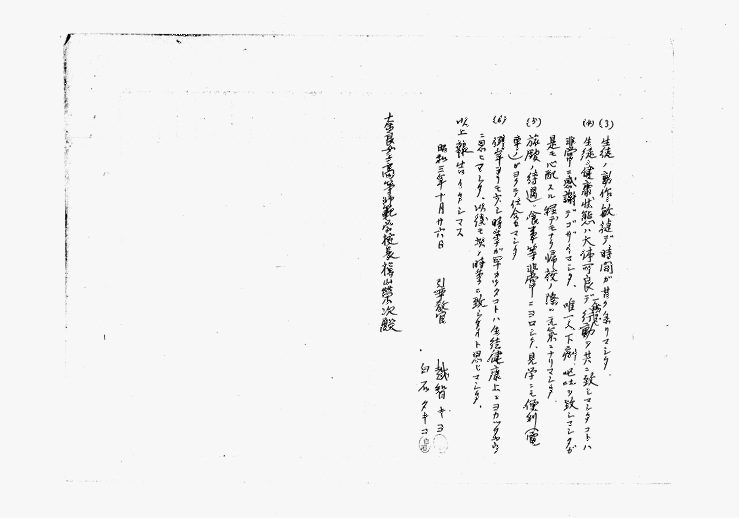 (3) 生徒ノ動作ハ敏捷デ時間ガ甘ク余リマシタ
(4) 生徒ノ健康状態ハ大体可良デ一般ニ行動ヲ共ニ致シマシタコトハ
非常ニ感謝デゴザイマシタ、唯一人下痢、嘔吐ヲ致シマシタガ
是モ心配スル程デモナク帰校ノ際ハ元気ニナリマシタ
(5) 旅館ノ待遇ハ食事等非常ニヨロシク、見学ニモ便利(電
車ノ)ガヨクテ仕合セマシタ
(6) 例年ヨリモ少シ時季ガ早カッタコトハ生徒健康上ニヨカッタヤウ
ニ思ヒマシタ、以後モ此ノ時季ニ致シタイト思ヒマシタ、
以上報告イタシマス
昭和三年十月廿六日
引率教官
越智キヨ
白石タキコ
奈良女子高等師範学校長 槇山榮次殿